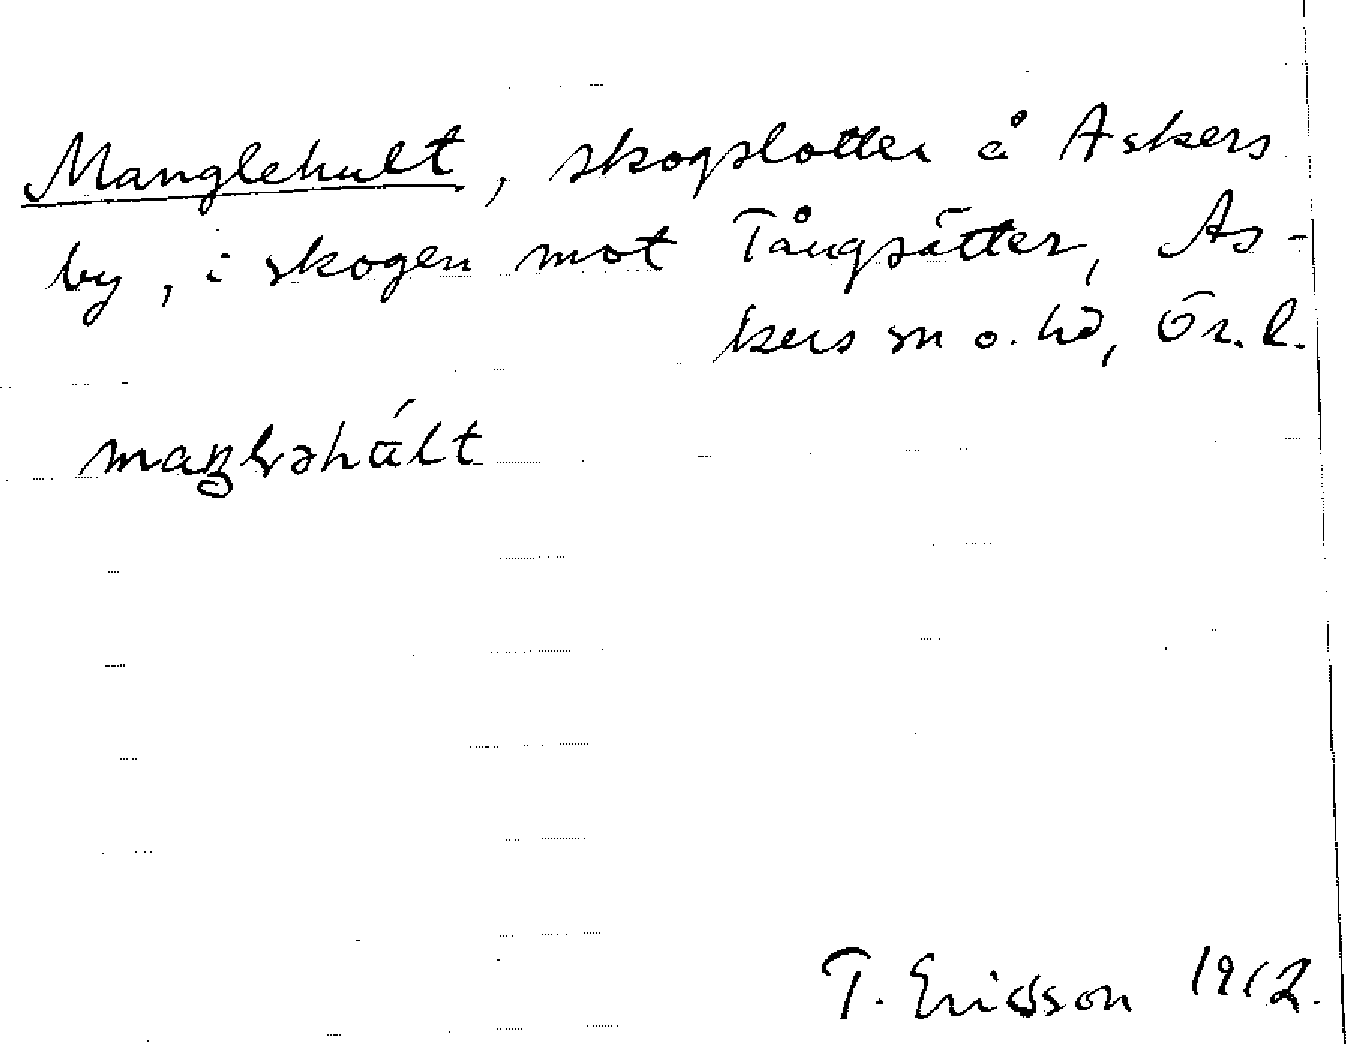 Manglehult, skogslotter å Askers
by, i skogen mot Tångsätter, As-
kers sn o. hd, Ör. l.
T. Ericsson 1912.